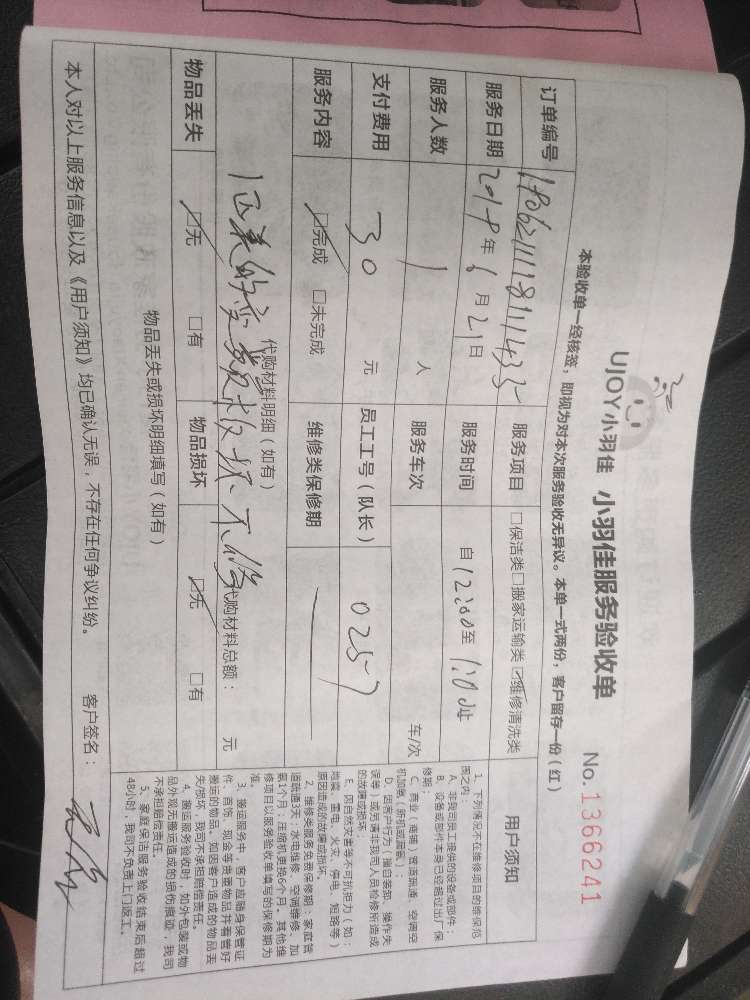 UJOY小羽佳 小羽佳服务验收单 No.1366241
本验收单一经核签，即视为对本次服务验收无异议。本单一式两份，客户留存一份（红）
订单编号 服务项目 □保洁类□搬家运输类☑维修清洗类
服务日期 2019年6月21日 服务时间 自12:00至1:00止
服务人数 1 人 服务车次 车/次
支付费用 30 元 员工工号（队长） 0257
服务内容 ☑完成 □未完成 维修类保修期
代购材料明细（如有） 代购材料总额： 元
物品丢失 ☑无 □有 物品损坏 ☑无 □有
物品丢失或损坏明细填写（如有）
本人对以上服务信息以及《用户须知》均已确认无误，不存在任何争议纠纷。 客户签名：
用户须知
1、下列情况不在维修项目的维保范
围之内：
A、非我司员工提供的设备或部件；
B、设备或部件本身已经超过出厂保
修期；
C、商业（商铺）管道疏通、空调空
机加氨（新机或漏氨）；
D、因客户行为（擅自装卸、操作失
误等）或另请非我司人员检修所造成
的故障或损坏；
E、因自然灾害等不可抗拒力（如：
地震、雷电、火灾、停电、短路等）
原因造成的故障或损坏。
2、维修类服务免费保修期：家庭管
道疏通3天；水电维修、空调维修、加
氨1个月；压缩机更换6个月，其他维
修项目以服务验收单填写的保修期为
准。
3、搬运服务中，客户应随身保管证
件、首饰、现金等贵重物品并看管好
搬运的物品。如因客户造成的物品丢
失/损坏，我司不承担赔偿责任。
4、搬运服务验收时，如外包装或物
品外观无搬运造成的损伤痕迹，我司
不承担赔偿责任。
5、家庭保洁服务验收结束后超过
48小时，我司不负责上门返工。